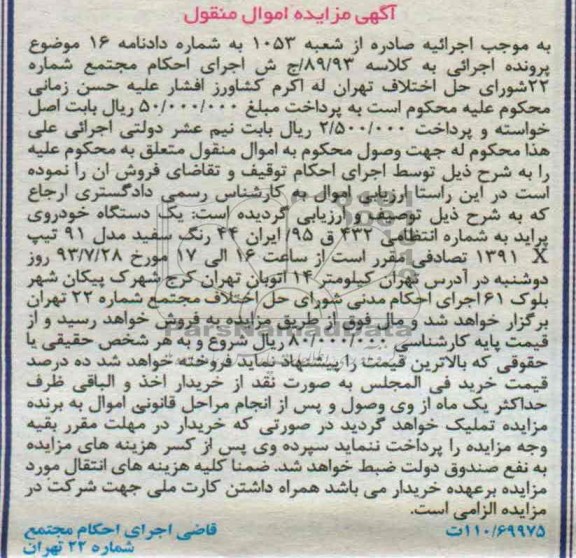 آگهی مزایده اموال منقول
به موجب اجرائیه صادره از شعبه ۱۰۵۳ به شماره دادنامه ۱۶ موضوع
پرونده اجرائی به کلاسه ۸۹/۹۳/ج ش اجرای احکام مجتمع شماره
۲۲شورای حل اختلاف تهران له اکرم کشاورز افشار علیه حسن زمانی
محکوم علیه محکوم است به پرداخت مبلغ ۵۰/۰۰۰/۰۰۰ ریال بابت اصل
خواسته و پرداخت ۲/۵۰۰/۰۰۰ ریال بابت نیم عشر دولتی اجرائی علی
هذا محکوم له جهت وصول محکوم به اموال منقول متعلق به محکوم علیه
را به شرح ذیل توسط اجرای احکام توقیف و تقاضای فروش ان را نموده
است در این راستا ارزیابی اموال به کارشناس رسمی دادگستری ارجاع
که به شرح ذیل توصیف و ارزیابی گردیده است: یک دستگاه خودروی
پراید به شماره انتظامی ۴۳۲ ق ۹۵/ ایران ۴۴ رنگ سفید مدل ۹۱ تیپ
X ۱۳۹۱ تصادفی مقرر است از ساعت ۱۶ الی ۱۷ مورخ ۹۳/۷/۲۸ روز
دوشنبه در آدرس تهران کیلومتر ۱۴ اتوبان تهران کرج شهرک پیکان شهر
بلوک ۶۱ اجرای احکام مدنی شورای حل اختلاف مجتمع شماره ۲۲ تهران
برگزار خواهد شد و مال فوق از طریق مزایده به فروش خواهد رسید و از
قیمت پایه کارشناسی ۸۰/۰۰۰/۰۰۰ ریال شروع و به هر شخص حقیقی یا
حقوقی که بالاترین قیمت را پیشنهاد نماید فروخته خواهد شد ده درصد
قیمت خرید فی المجلس به صورت نقد از خریدار اخذ و الباقی ظرف
حداکثر یک ماه از وی وصول و پس از انجام مراحل قانونی اموال به برنده
مزایده تملیک خواهد گردید در صورتی که خریدار در مهلت مقرر بقیه
وجه مزایده را پرداخت ننماید سپرده وی پس از کسر هزینه های مزایده
به نفع صندوق دولت ضبط خواهد شد. ضمنا کلیه هزینه های انتقال مورد
مزایده برعهده خریدار می باشد همراه داشتن کارت ملی جهت شرکت در
مزایده الزامی است.
قاضی اجرای احکام مجتمع
شماره ۲۲ تهران
۱۱۰/۶۹۹۷۵ت
ParsNamadData